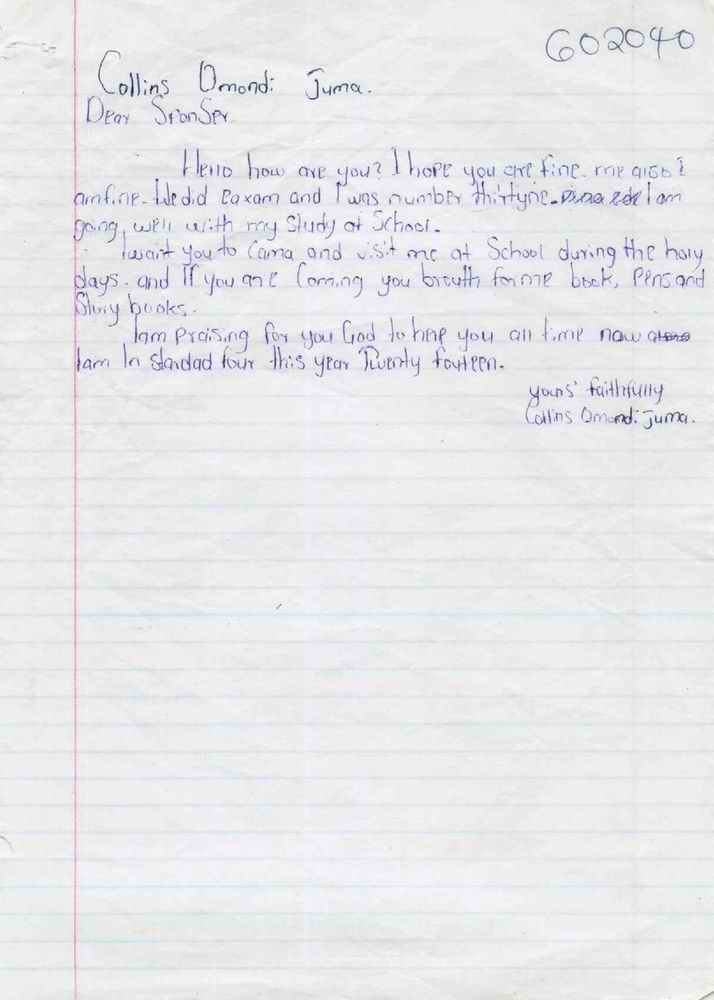 602040
Collins Omondi Juma.
Dear Sponser
Hello how are you? I hope you are fine. me also I
am fine. We did eaxam and I was number thirtyne. I am
going well with my study at School.
I want you to Cama and visit me at School during the holy
days. and If you are Coming you brouth for me book, Pens and
Story books.
I am praising for you God to help you all time now
I am In standad four this year Twenty fouteen.
yours' faithfully
Collins Omondi Juma.